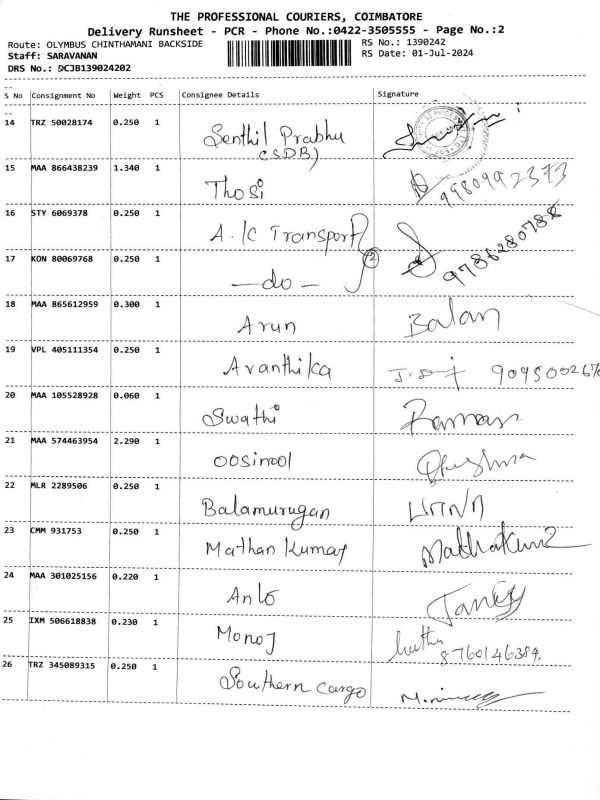 THE PROFESSIONAL COURIERS, COIMBATORE
Delivery Runsheet - PCR - Phone No.:0422-3505555 - Page No.:2
Route: OLYMBUS CHINTHAMANI BACKSIDE
RS No.: 1390242
Staff: SARAVANAN
RS Date: 01-Jul-2024
DRS No.: DCJB139024202
S No Consignment No Weight PCS Consignee Details Signature
14 TRZ 50028174 0.250 1 Senthil Prabhu
(SDB)
15 MAA 866438239 1.340 1 Thosi 9980992373
16 STY 6069378 0.250 1 A.K Transport
17 KON 80069768 0.250 1 —do— 2 9786280788
18 MAA 865612959 0.300 1 Arun Balan
19 VPL 405111354 0.250 1 Avanthika
20 MAA 105528928 0.060 1 Swathi Raman
21 MAA 574463954 2.290 1 oosinool
22 MLR 2289506 0.250 1 Balamurugan
23 CMM 931753 0.250 1 Mathan Kumar
24 MAA 301025156 0.220 1 Anto
25 IXM 506618838 0.230 1 Monoj 8760146384.
26 TRZ 345089315 0.250 1 Southern cargo